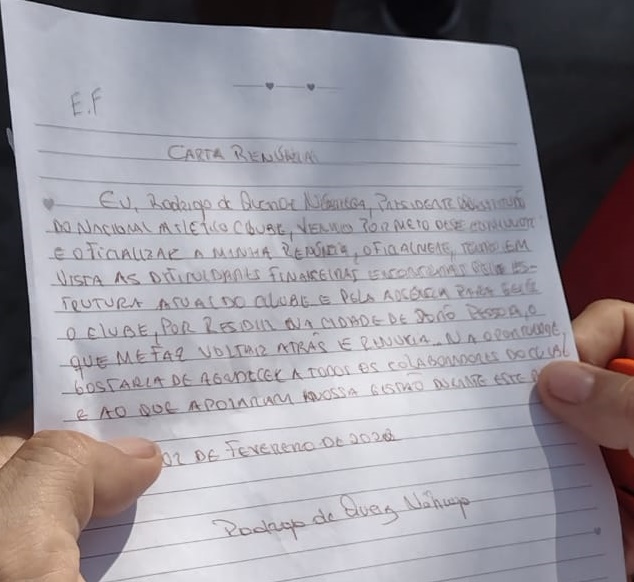 E.F
CARTA RENÚNCIA
EU, Rodrigo de Queiroz Nóbrega, PRESIDENTE
DO NACIONAL ATLÉTICO CLUBE, VENHO POR MEIO DESSE
E OFICIALIZAR A MINHA RENÚNCIA, TENDO EM
VISTA AS FINANCEIRAS ENCONTRADAS PELA ES-
TRUTURA ATUAL DO CLUBE E PELA AUSÊNCIA PARA GERIR
O CLUBE, POR RESIDIR NA CIDADE DE JOÃO PESSOA, O
QUE ME FAZ VOLTAR ATRÁS E RENUNCIAR. NA
GOSTARIA DE AGRADECER A TODOS OS COLABORADORES DO CLUBE
E AO QUE APOIARAM NOSSA GESTÃO DURANTE ESTE
02 DE FEVEREIRO DE 2022
Rodrigo de Queiroz Nóbrega